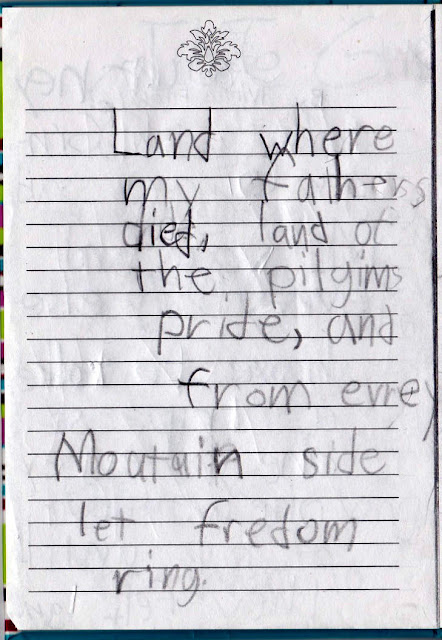 Land where
my fathers
died, land of
the pilgims
pride, and
from evrey
Moutain side
let fredom
ring.